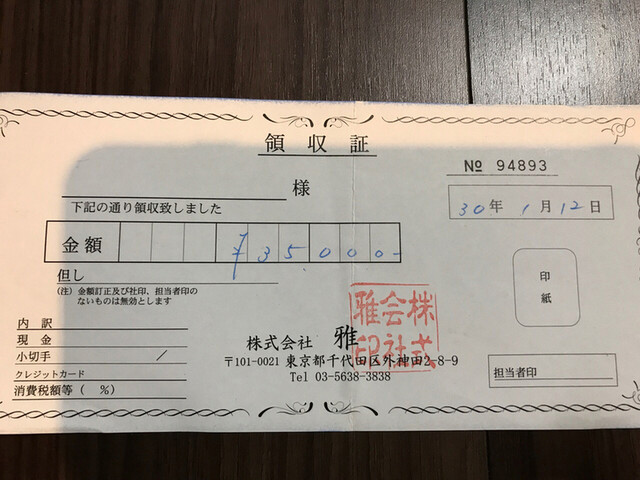 領収証
№ 94893
様
30年 1月12日
下記の通り領収致しました
金額 ¥35000-
但し
(注) 金額訂正及び社印、担当者印の
ないものは無効とします
印
紙
内 訳
現 金
小切手 /
クレジットカード
消費税額等( %)
株式会社 雅
〒101-0021 東京都千代田区外神田2-8-9
Tel 03-5638-3838
株式
会社
雅印
担当者印